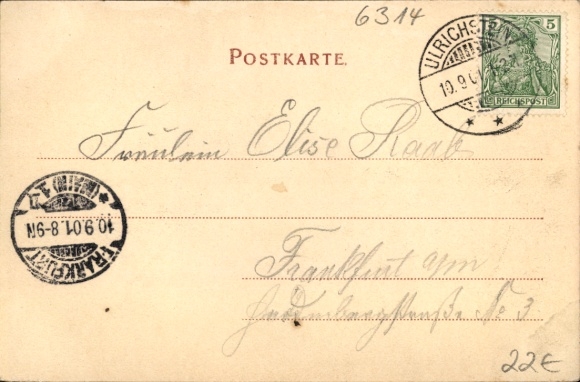 6314
POSTKARTE.
ULRICHSTEIN
10.9.01
5
REICHSPOST
Fräulein Elise Raab
FRANKFURT (MAIN)
10.9.01.8-9N
Frankfurt a/m
No 3
22€